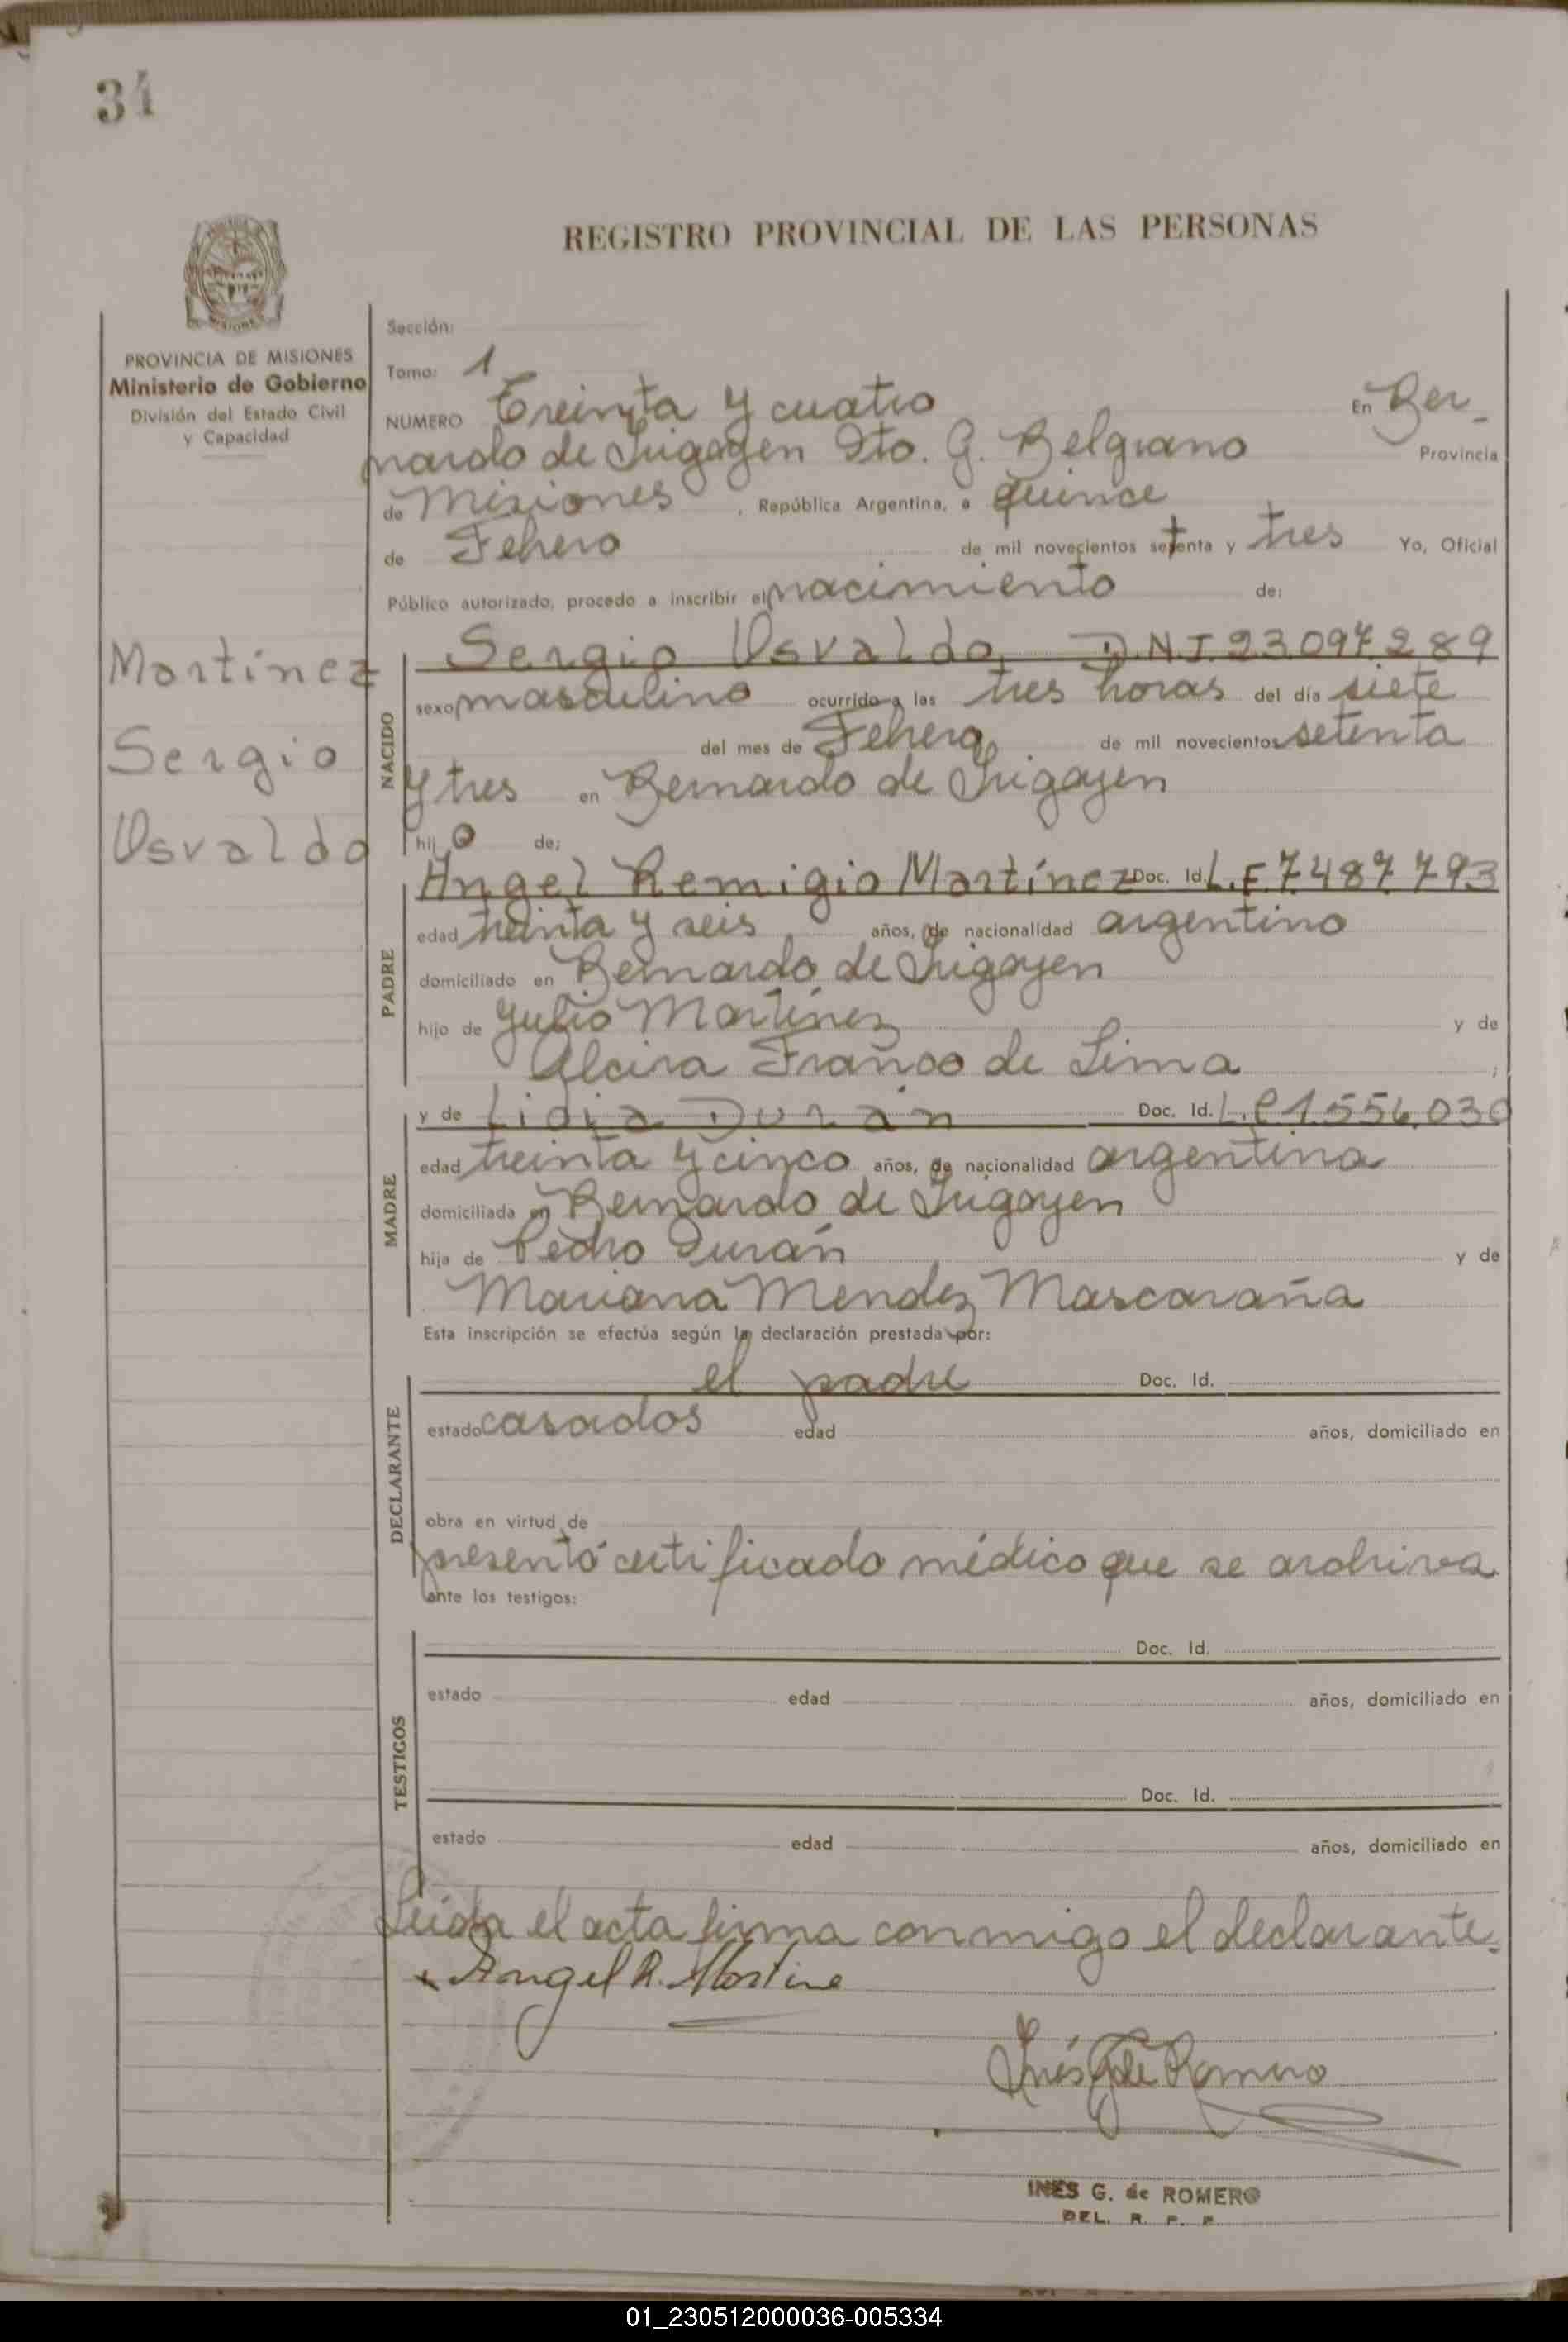 34
REGISTRO PROVINCIAL DE LAS PERSONAS
MISIONES
PROVINCIA DE MISIONES
Ministerio de Gobierno
División del Estado Civil
y Capacidad
Martínez
Sergio
Osvaldo
Sección:
Tomo: 1
NUMERO Treinta y cuatro En Ber-
nardo de Irigoyen Dto. G. Belgrano Provincia
de Misiones, República Argentina, a quince
de Febrero de mil novecientos setenta y tres Yo, Oficial
Público autorizado, procedo a inscribir el nacimiento de:
NACIDO
Sergio Osvaldo D.N.I. 23.097.289
sexo masculino ocurrido a las tres horas del día siete
del mes de Febrero de mil novecientos setenta
y tres en Bernardo de Irigoyen
hijo de:
PADRE
Angel Remigio Martínez Doc. Id. L.E 7.487.793
edad treinta y seis años, de nacionalidad argentino
domiciliado en Bernardo de Irigoyen
hijo de Julio Martínez y de
Alcira Franco de Lima ;
MADRE
y de Lidia Durán Doc. Id. L.C 1.556.030
edad treinta y cinco años, de nacionalidad argentina
domiciliada en Bernardo de Irigoyen
hija de Pedro Durán y de
Mariana Mendez Mascaraña
Esta inscripción se efectúa según la declaración prestada por:
DECLARANTE
el padre Doc. Id.
estado casados edad años, domiciliado en
obra en virtud de
presentó certificado médico que se archiva
ante los testigos:
TESTIGOS
Doc. Id.
estado edad años, domiciliado en
Doc. Id.
estado edad años, domiciliado en
Leída el acta firma conmigo el declarante.
x Angel R. Martine
Inés G de Romero
INES G. de ROMERO
DEL. R. P. P.
01_230512000036-005334